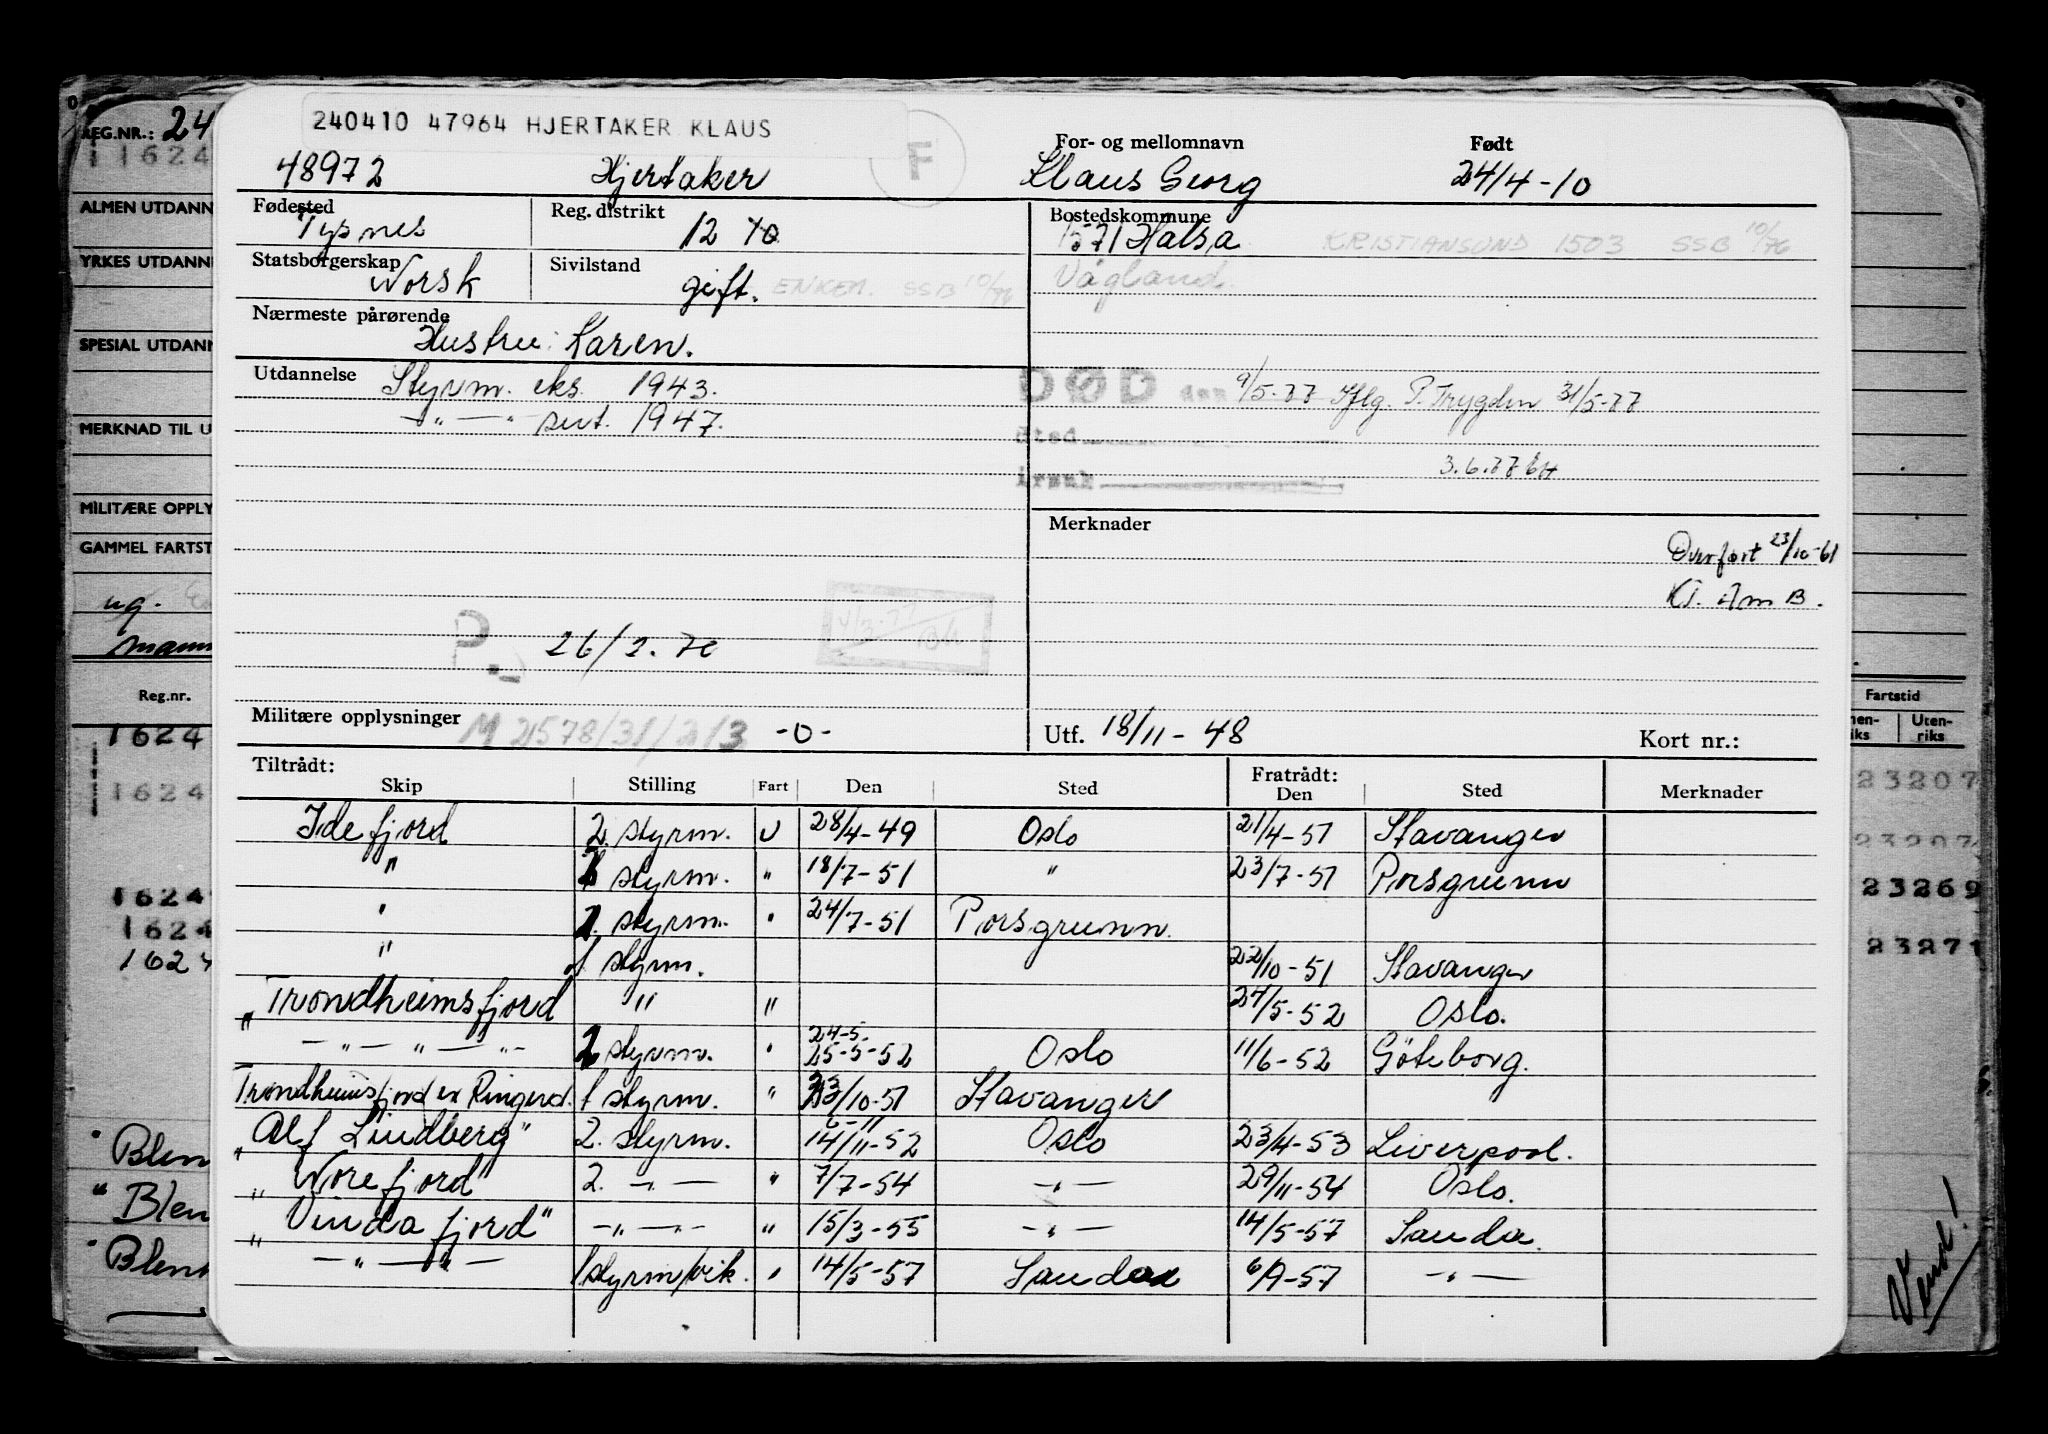 240410 47964 HJERTAKER KLAUS
F
REG.NR.: 24
11624
48972 Hjertaker
For- og mellomnavn Klaus Georg
Født 24/4-10
ALMEN UTDANN
YRKES UTDANN
SPESIAL UTDANN
MERKNAD TIL U
MILITÆRE OPPLY
GAMMEL FARTST
ug.
Reg.nr.
Fødested Tysnes
Reg. distrikt 12 70
Bostedskommune
1571 Halsa KRISTIANSUND 1503 SSB 10/76
Vågland.
Statsborgerskap Norsk
Sivilstand gift. ENKEM. SSB 10/76
Nærmeste pårørende
Hustru: Karen.
Utdannelse Styrm. eks. 1943.
—"—" sert. 1947.
DØD den 9/5-77 Iflg. P.Trygden 31/5-77
Sted
Årsak
3.6.77
Merknader
Overført 23/10-61
P. 26/2.70
4/3-77
Militære opplysninger M 21578/31/2/3 -0-
Utf. 18/11-48
Kort nr.:
Tiltrådt:
Skip Stilling Fart Den Sted
Fratrådt:
Den Sted Merknader
Idefjord 2. styrm. U 28/4-49 Oslo 21/4-51 Stavanger
" 1 styrm. " 18/7-51 " 23/7-51 Porsgrunn
" 2. styrm. " 24/7-51 Porsgrunn.
" 1. styrm. 22/10-51 Stavanger
"Trondheimsfjord " " 24/5-52 Oslo.
—"—"—"— 2 styrm. " 24-5- 25-5-52 Oslo 11/6-52 Göteborg.
Trondheimsfjord ex Ringerd. 1 styrm. " 23/10-51 Stavanger
"Alf Lindberg" 2. styrm. 6-11 14/11-52 Oslo 23/4-53 Liverpool.
"Norefjord" 2. —"— " 7/7-54 —"— 29/11-54 Oslo.
"Vindafjord" —"—"— " 15/3-55 —"— 14/5-57 Sauda.
—"—"— 1 styrm/vik. " 14/5-57 Sauda 6/9-57 —"—
Fartstid
nen-
iks
Uten-
riks
1624
1624
1624
1624
1624
23207
23207
23269
23271
" Blen
" Blen
" Blen
Vend!